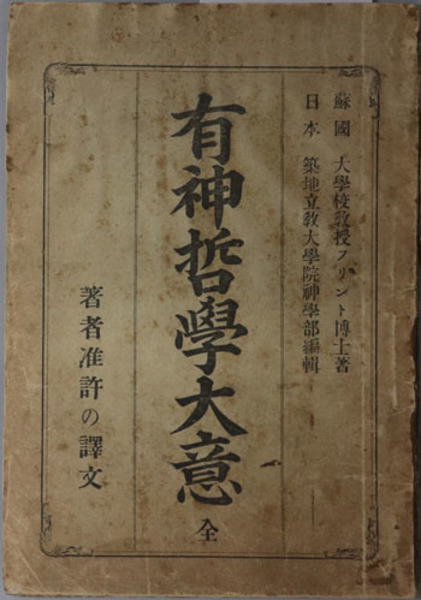 蘇國 大學校敎授フリント博士著
日本 築地立敎大學院神學部編輯
有神哲學大意 全
著者准許の譯文